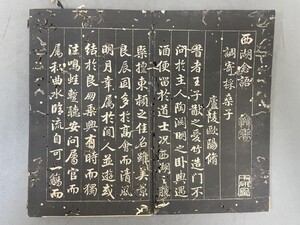 西湖念語
調寄採桑子
廬陵歐陽脩
昔者王子猷之愛竹造門不
問於主人陶淵明之卧輿遇
酒便留於道士况西湖之勝
槩擅東潁之佳名雖美景
良辰固多於高會而清風
明月幸屬於閑人並遊或
結於良朋乗興有時而獨
往鳴蛙暫聽安問屬官而
屬私曲水臨流自可一觴而